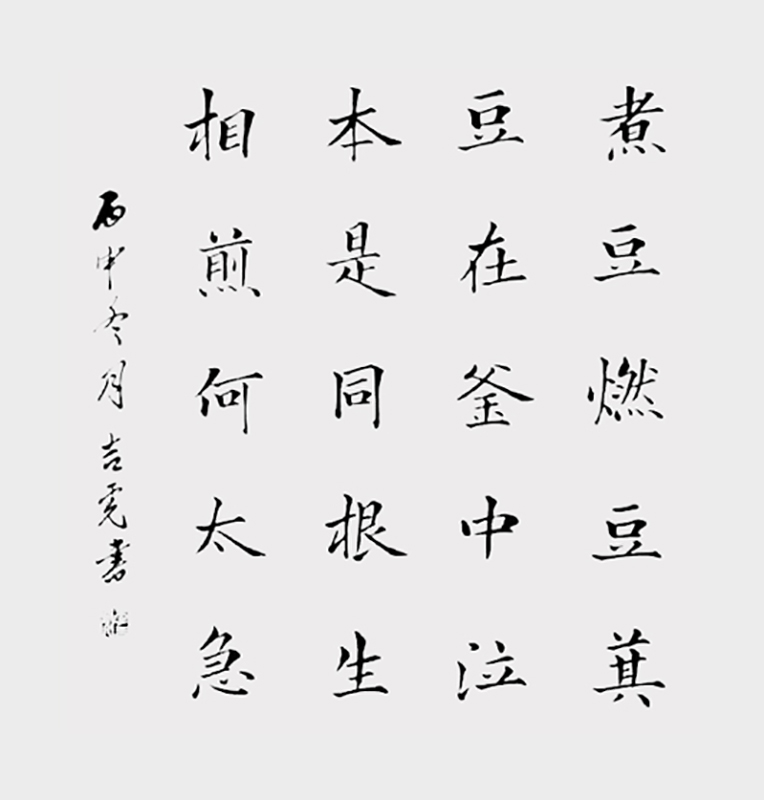 煮豆燃豆萁
豆在釜中泣
本是同根生
相煎何太急
丙申冬月吉亮書